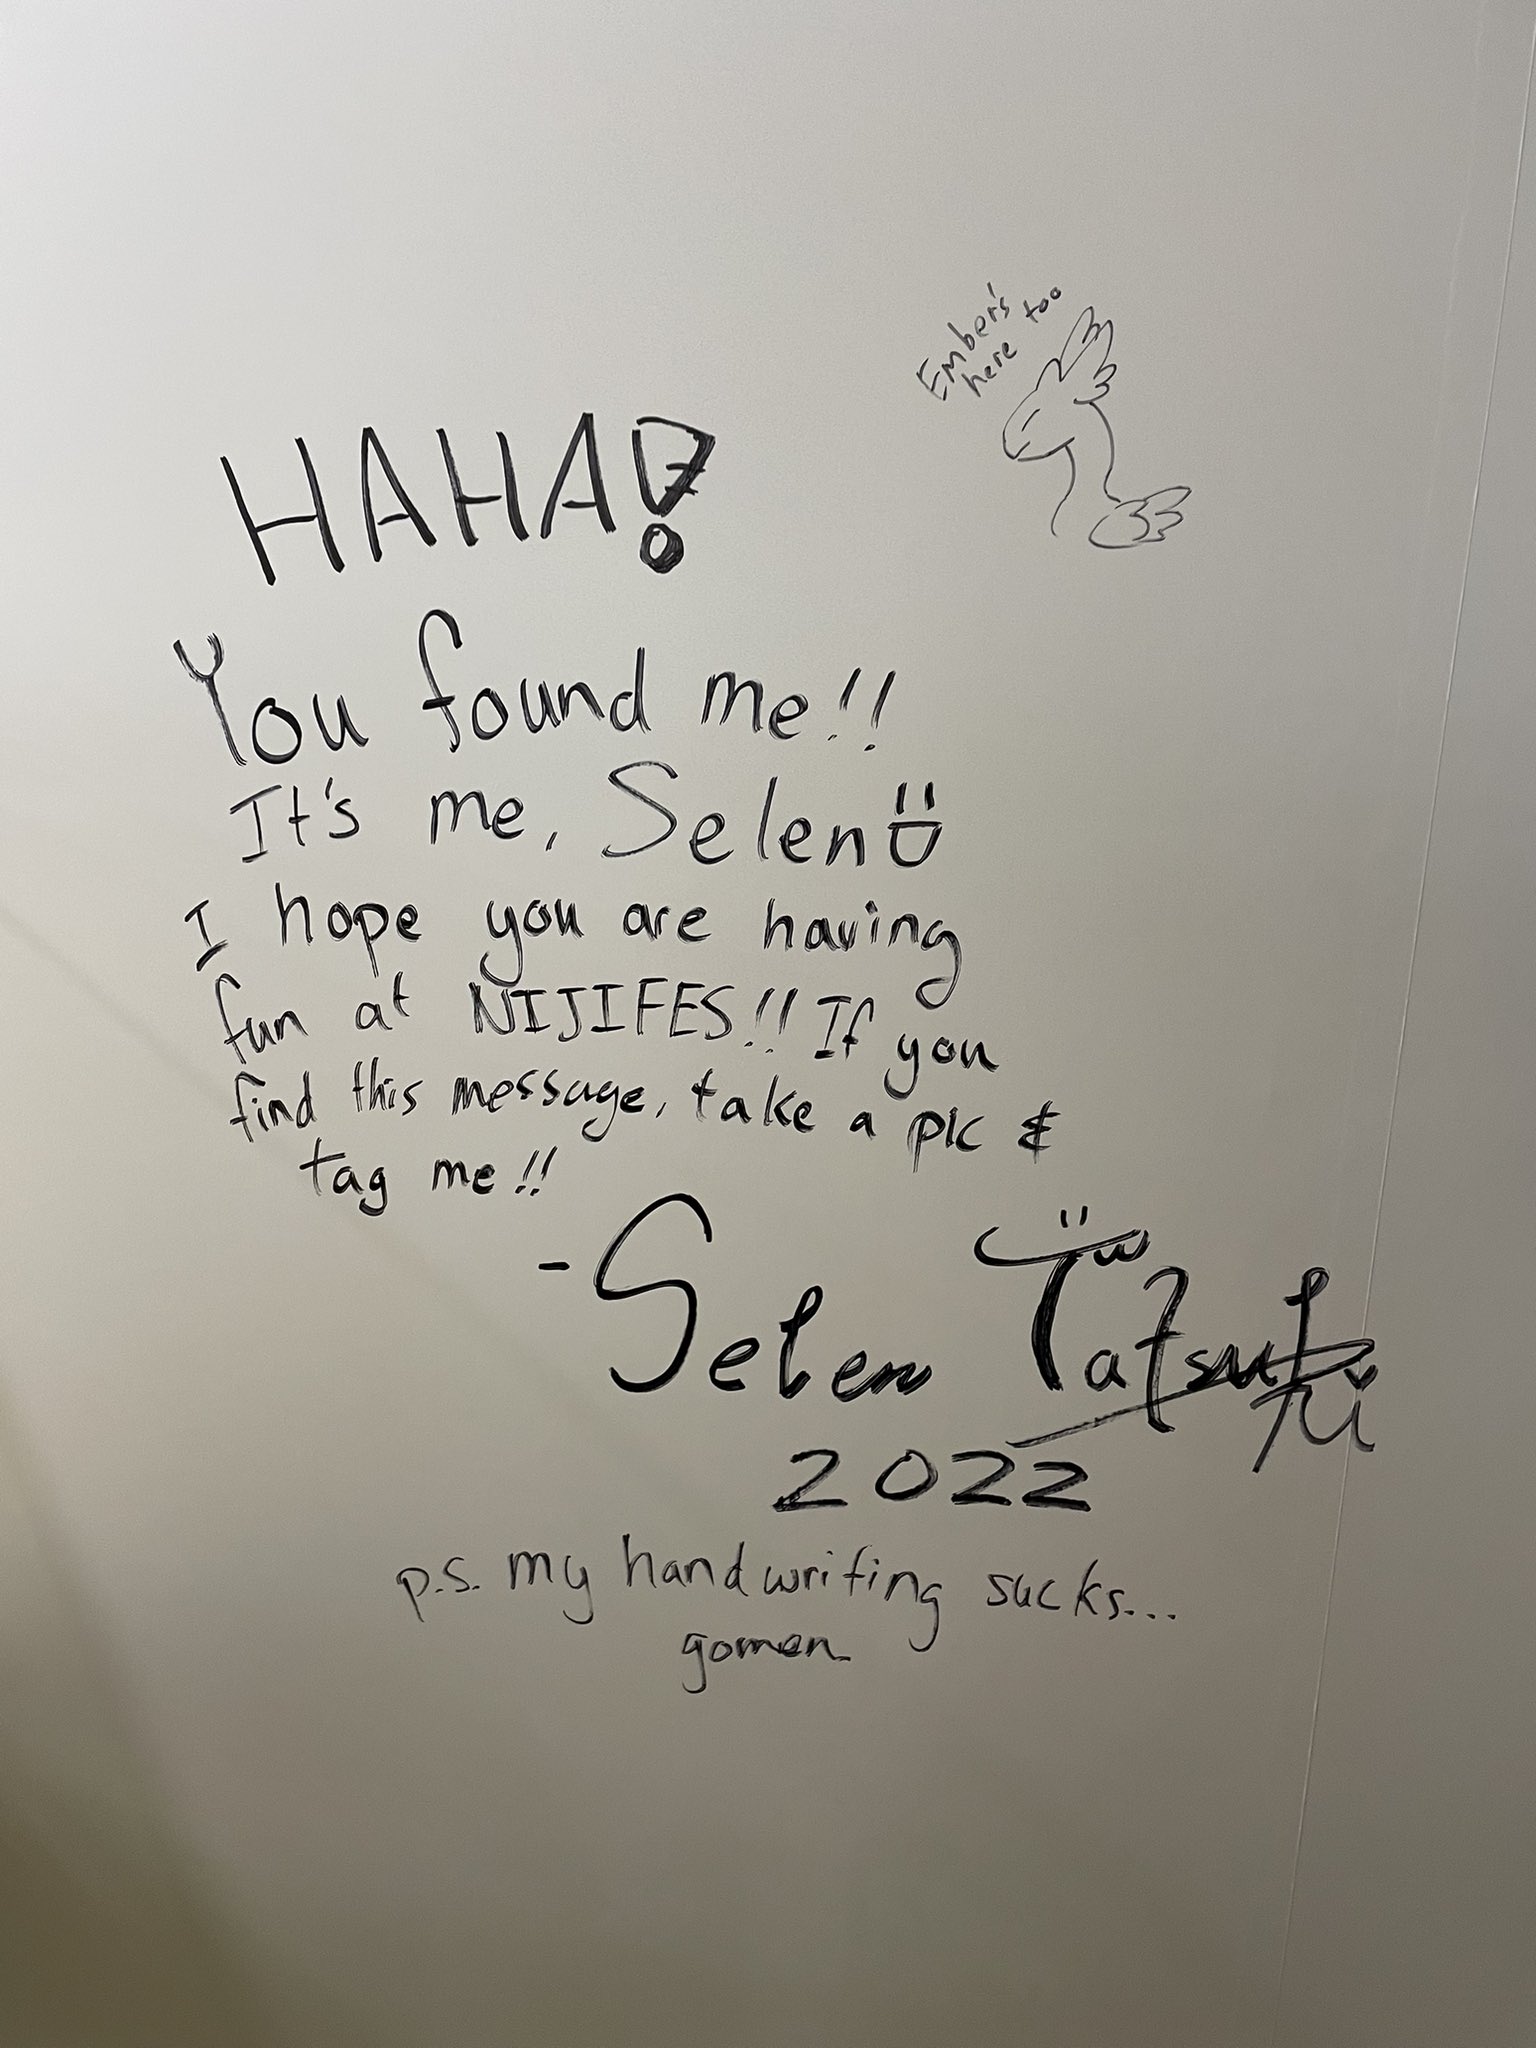 Ember's
here too
HAHA!
You found me!!
It's me, Selen
I hope you are having
fun at NIJIFES!! If you
find this message, take a pic &
tag me!!
- Selen Tatsuki
2022
p.s. my handwriting sucks...
gomen